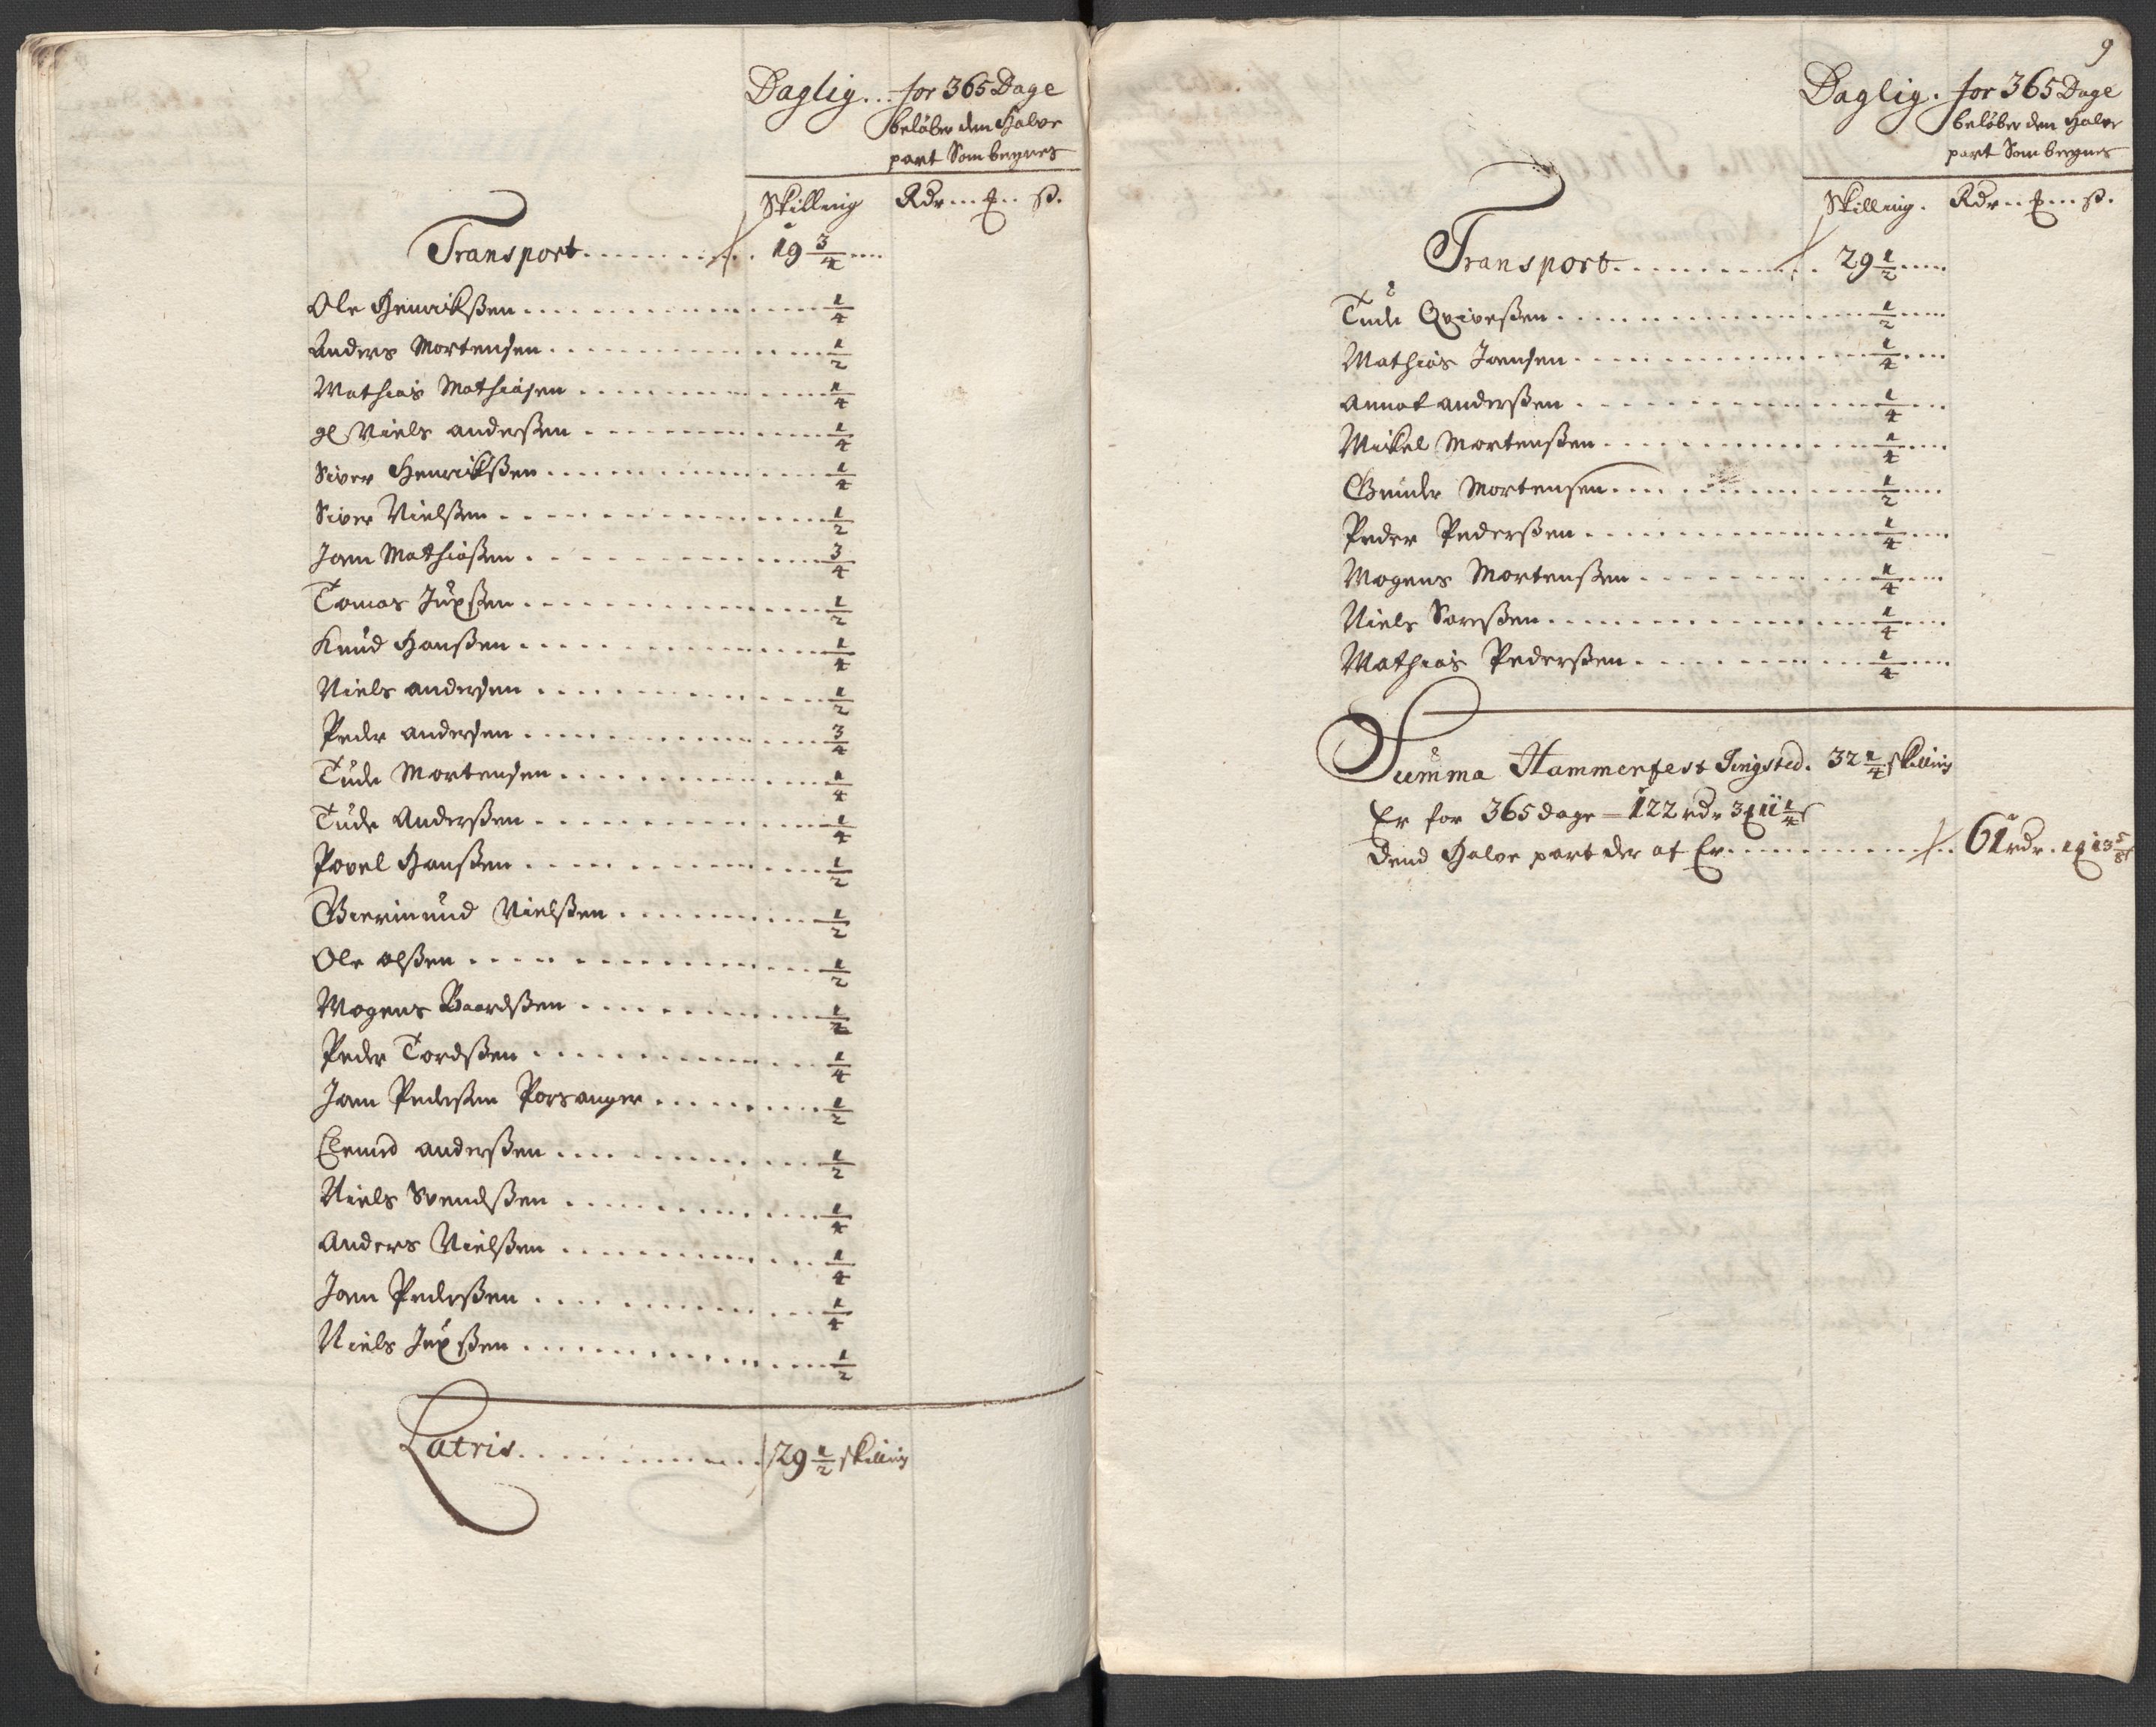 Daglig... for 365 Dage
beløber den Halve
part Som beregnes
Skilling Rdr... ... ß.
Transport . . . . 19 3/4 ...
Ole Henrikßen . . . . 1/4
Anders Mortensen . . . . 1/2
Mathias Mathiasen . . . . 1/4
gl Niels anderßen . . . . 1/4
Siver Henrikßen . . . . 1/4
Siver Nielßen . . . . 1/2
Joen Mathiaßen . . . . 3/4
Tomas Jupßen . . . . 1/2
Knud Hanßen . . . . 1/4
Niels andersen . . . . 1/2
Peder andersen . . . . 3/4
Tude Mortensen . . . . 1/4
Tude Anderßen . . . . 1/4
Povel Hanßen . . . . 1/2
Nielßen . . . . 1/2
Ole olßen . . . . 1/2
Mogens Baardßen . . . . 1/2
Peder Tordßen . . . . 1/4
Joen Pederßen Porsanger . . . . 1/2
anderßen . . . . 1/2
Niels Svendßen . . . . 1/4
Anders Nielßen . . . . 1/4
Joen Pederßen . . . . 1/4
Niels Jupßen . . . . 1/2
Latris . . . . 29 1/2 skilling
9
Daglig. for 365 Dage
beløber den Halve
part Som beregnes
Skilling. Rdr... ... ß.
Transport . . . . 29 1/2 ...
Tude . . . . 1/2
Mathias Joensen . . . . 1/4
anderßen . . . . 1/4
Mikel Mortenßen . . . . 1/4
Mortensen . . . . 1/2
Peder Pederßen . . . . 1/4
Mogens Mortenßen . . . . 1/4
Niels Sareßen . . . . 1/4
Mathias Pederßen . . . . 1/4
Summa Hammerfest Tingsted. 32 1/4 skilling
Er for 365 dage = 122 rdr 3 11 1/4
Dend Halve part der af Er . . . . 61 rdr. 1 13 5/8